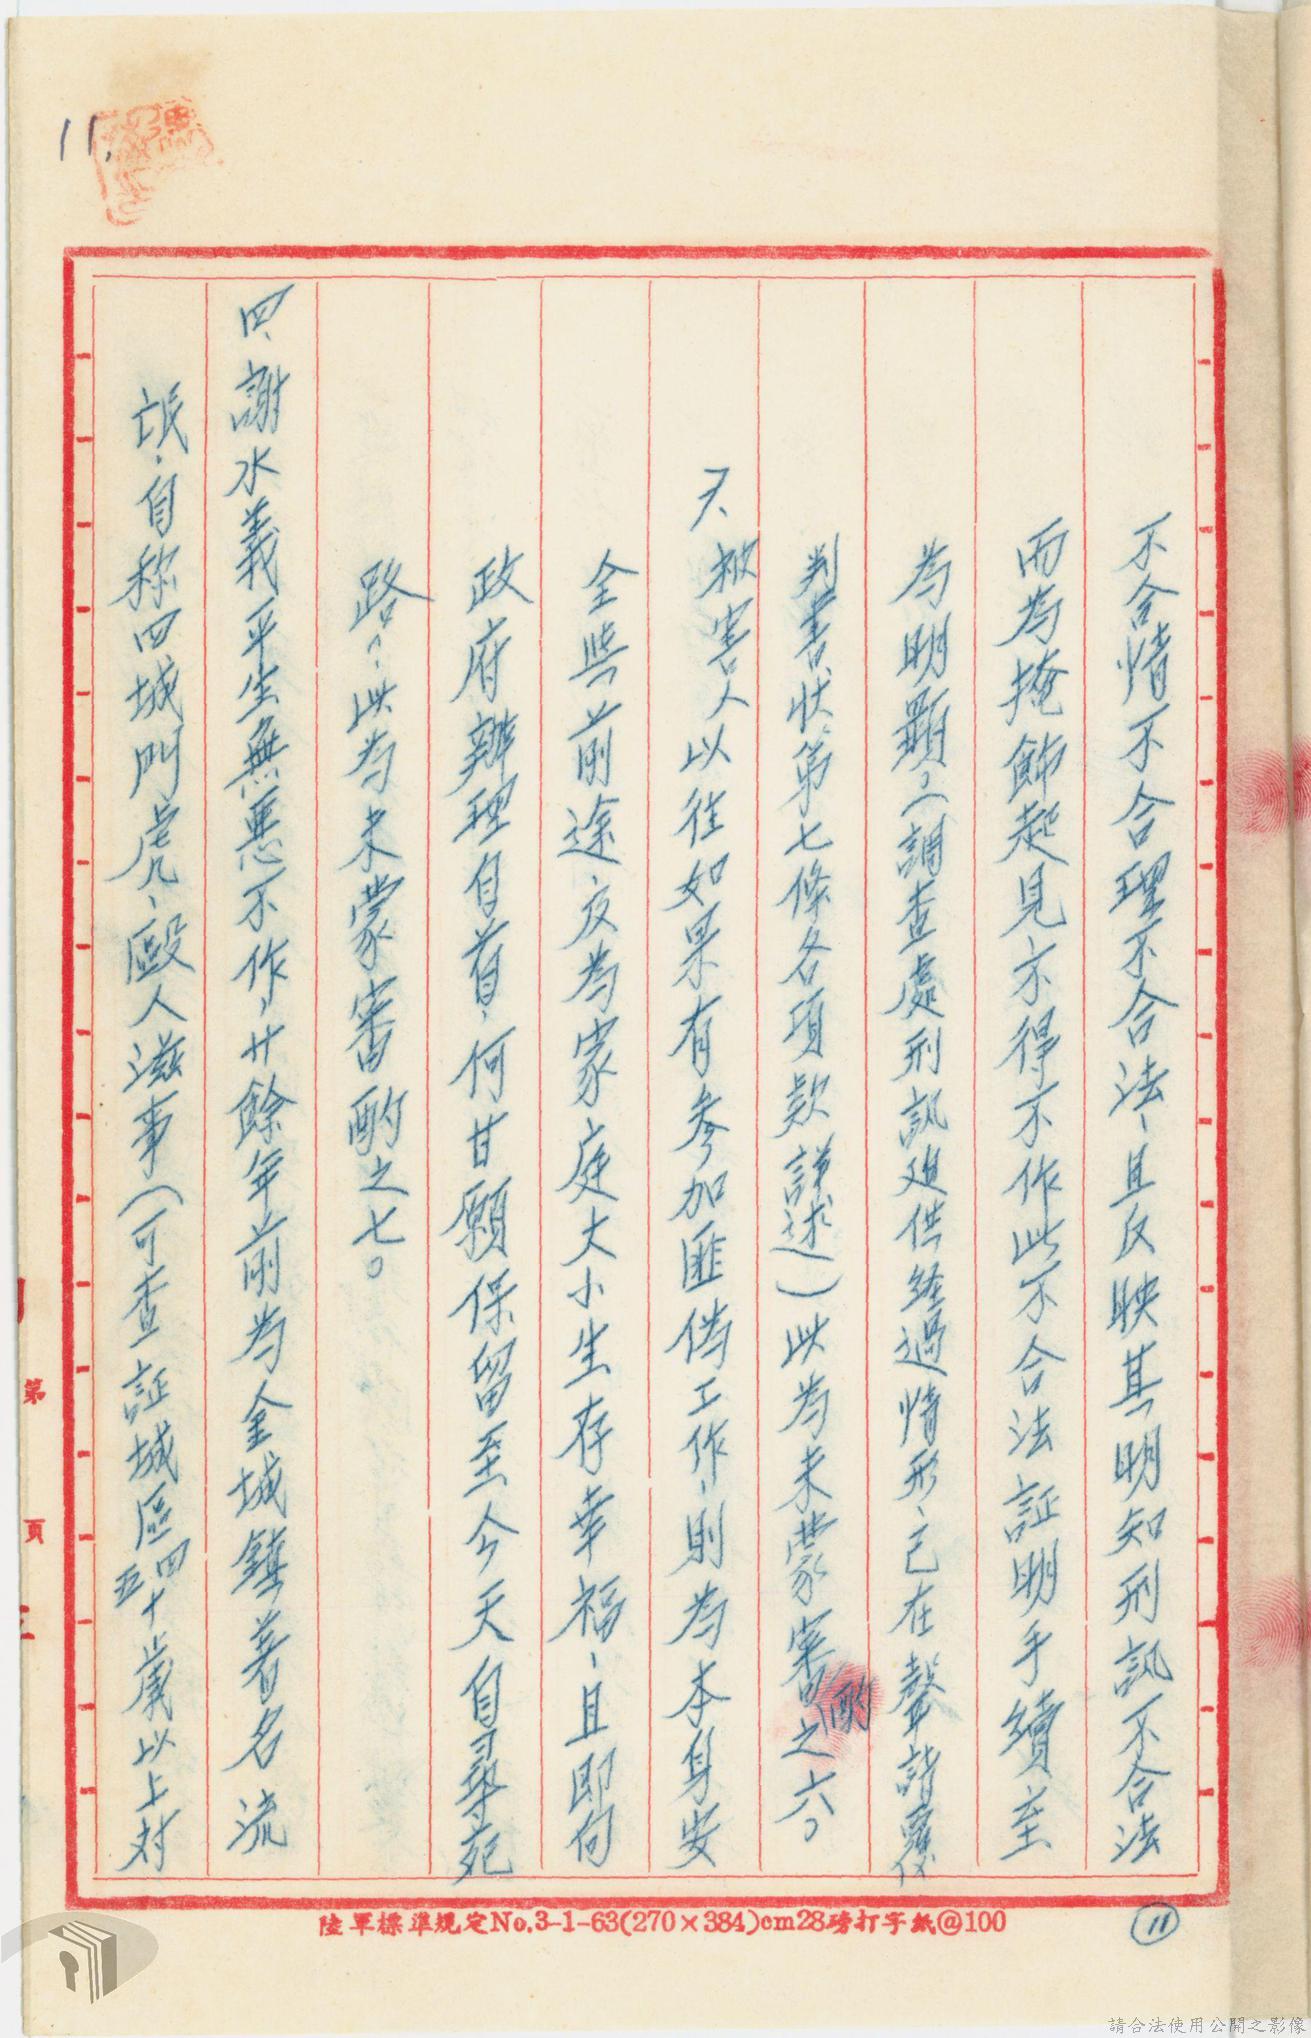 11.
不合情不合理不合法、且反映其明知刑訊不合法
而為掩飾起見亦不得不作此不合法証明手續至
為明顯。（調查處刑訊廹供経過情形、己在聲請覆
判書狀第七條各項欵詳述）此為未蒙審酌之六。
7、被害人以往如果有參加匪偽工作、則為本身安
全與前途、及為家庭大小生存幸福、且即向
政府辦理自首、何甘願保留至今天自尋死
路、此為未蒙審酌之七。
四、謝水義平生無悪不作、廿餘年前為金城鎮著名流
氓、自称四城門虎、毆人滋事（可查証城區四五十歲以上対
陸軍標準規定No.3-1-63(270×384)cm28磅打字紙@100
11
第 頁
請合法使用公開之影像